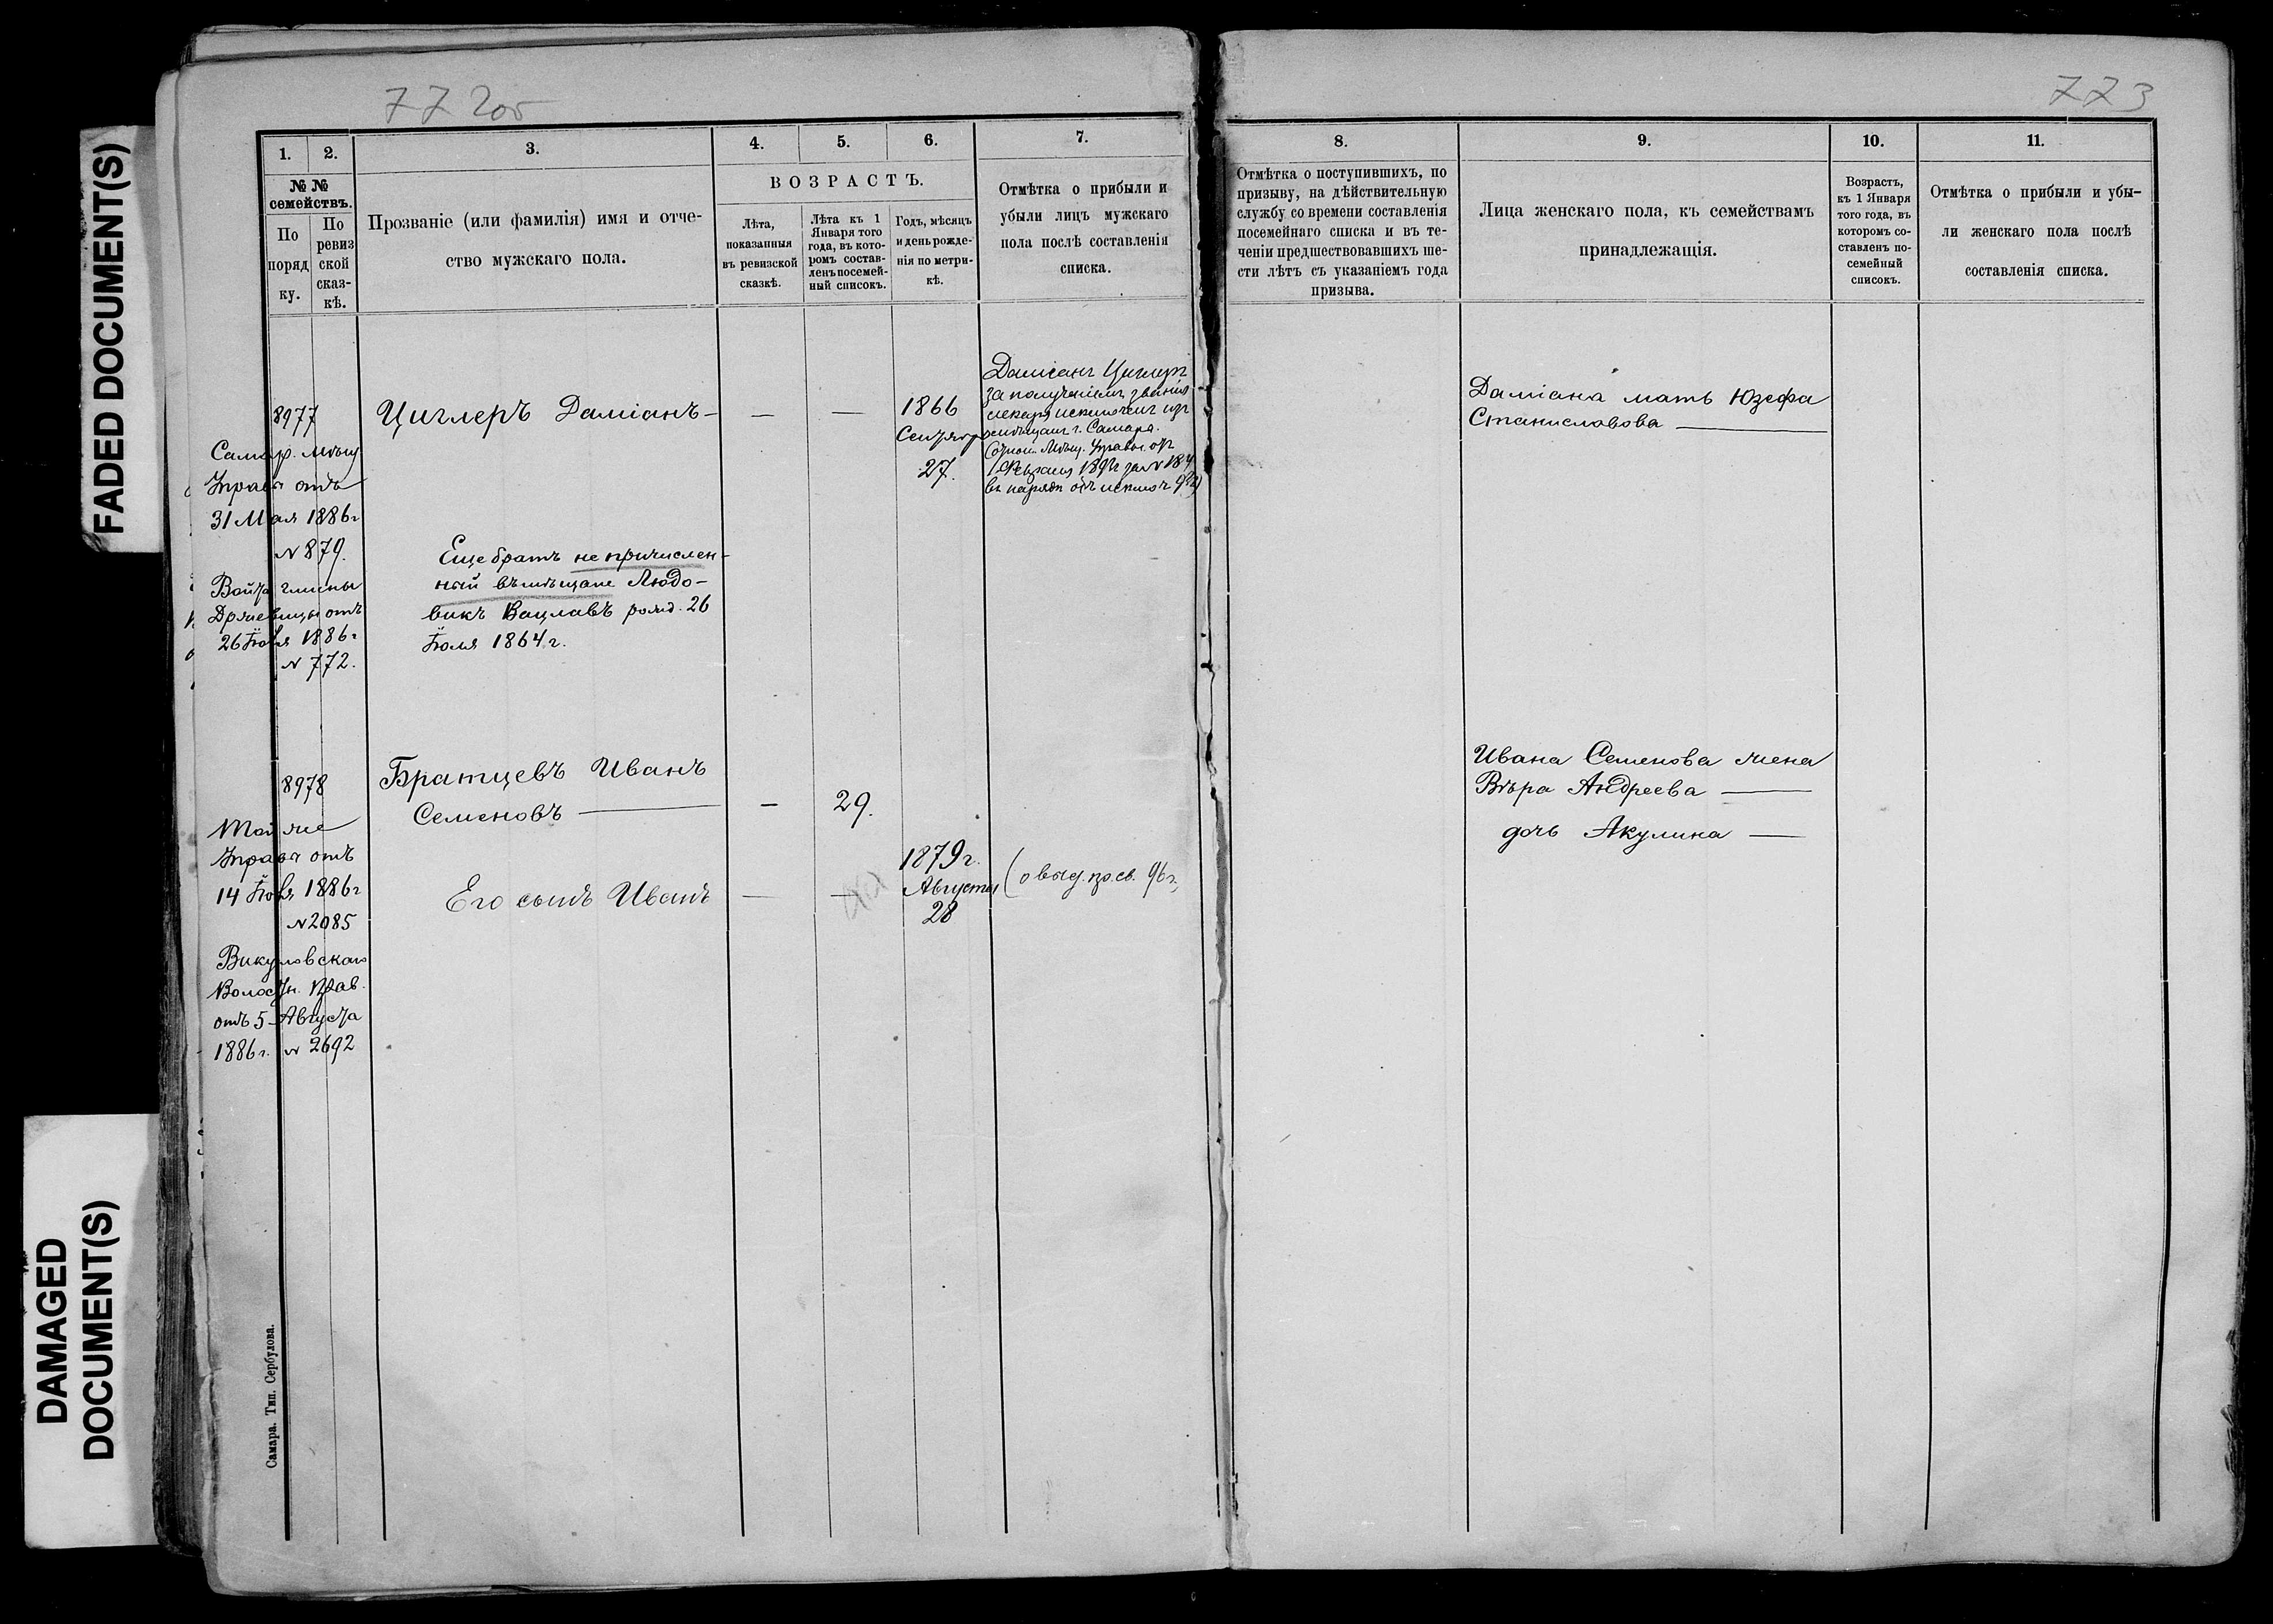 FADED DOCUMENT(S)
DAMAGED
DOCUMENT(S)
772об
773
1.
2.
3.
4.
5.
6.
7.
№ №
семействъ.
По
поряд
ку.
По
ревиз
ской
сказ-
кѣ.
Прозваніе (или фамилія) имя и отче-
ство мужскаго пола.
ВОЗРАСТЪ.
Лѣта,
показанныя
въ ревизской
сказкѣ.
Лѣта къ 1
Января того
года, въ кото-
ромъ состав-
ленъ посемей-
ный списокъ.
Годъ, мѣсяцъ
и день рожде-
нія по метри-
кѣ.
Отмѣтка о прибыли и
убыли лицъ мужскаго
пола послѣ составленія
списка.
8.
9.
10.
11.
Отмѣтка о поступившихъ, по
призыву, на дѣйствительную
службу со времени составленія
посемейнаго списка и въ те-
ченіи предшествовавшихъ ше-
сти лѣтъ съ указаніемъ года
призыва.
Лица женскаго пола, къ семействамъ
принадлежащія.
Возрастъ,
къ 1 Января
того года, въ
которомъ со-
ставленъ по-
семейный
списокъ.
Отмѣтка о прибыли и убы-
ли женскаго пола послѣ
составленія списка.
8977
Самар. Мѣщ
Управы отъ
31 Мая 1886г
№ 879.
гмины
отъ
26 1886г
№ 772.
Циглеръ Даміанъ-
Еще братъ не причислен-
ный въ мѣщане Людо-
викъ Вацлавъ рожд. 26
Іюля 1864 г.
— —
1866
Сентября
27.
Даміанъ Циглеръ
за полученіемъ званія
лекаря исключенъ изъ
мѣщанъ г. Самара.
Мѣщ. Управы отъ
Даміана мать Юзефа
Станиславова —
8978
Той же
Управы отъ
14 1886г
№ 2085
Викуловскаго
Волостн. Прав.
отъ 5 Августа
1886г. № 2692
Братцевъ Иванъ
Семеновъ —
— 29.
Его сынъ Иванъ — —
1879 г.
Августа
28
Ивана Семенова жена
Вѣра Андреева —
дочь Акулина —
Самара. Тип. Сербулова.